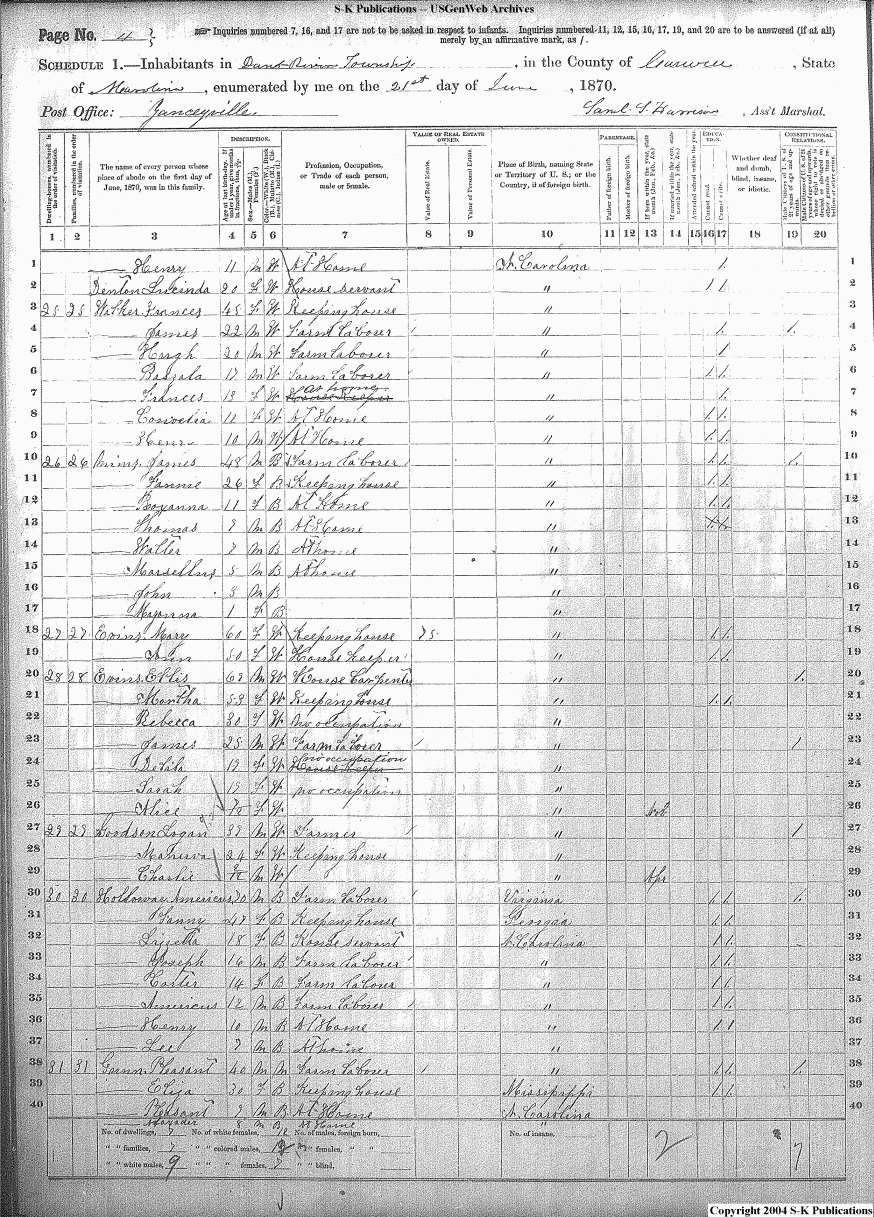 S-K Publications -- USGenWeb Archives
Page No. 4
Inquiries numbered 7, 16, and 17 are not to be asked in respect to infants. Inquiries numbered 11, 12, 15, 16, 17, 19, and 20 are to be answered (if at all) merely by an affirmative mark, as /.
SCHEDULE 1.—Inhabitants in Dan River Township, in the County of Caswell, State
of N Carolina, enumerated by me on the 21st day of June, 1870.
Post Office: Yanceyville Saml. S. Harrison, Ass't Marshal.
DESCRIPTION. VALUE OF REAL ESTATE OWNED. PARENTAGE. EDUCATION. CONSTITUTIONAL RELATIONS.
Dwelling-houses, numbered in the order of visitation.
Families, numbered in the order of visitation.
The name of every person whose place of abode on the first day of June, 1870, was in this family.
Profession, Occupation, or Trade of each person, male or female.
Value of Real Estate.
Value of Personal Estate.
Place of Birth, naming State or Territory of U. S.; or the Country, if of foreign birth.
Father of foreign birth.
Mother of foreign birth.
Attended school within the year.
Cannot read.
Cannot write.
Whether deaf and dumb, blind, insane, or idiotic.
1 2 3 4 5 6 7 8 9 10 11 12 13 14 15 16 17 18 19 20
1 —— Henry 11 M W At Home N. Carolina / 1
2 Denton Lucinda 20 F W House Servant " / / 2
3 25 25 Walker Frances 45 F W Keeping house " 3
4 —— James 22 M W Farm laborer " / / 4
5 —— Hugh 20 M W Farm laborer " / 5
6 —— 17 M W Farm laborer " / / 6
7 —— Frances F W at home " / 7
8 —— 12 F W At Home " / / 8
9 —— Henry 10 M W At Home " / / 9
10 26 26 Mims James 48 M B Farm laborer " / / / 10
11 —— Fannie 26 F B Keeping house " / / 11
12 —— Boyanna 11 F B At Home " / / 12
13 —— Thomas M B At Home " 13
14 —— Walter 7 M B At home " 14
15 —— Marsellus 5 M B At home " 15
16 —— John 3 M B " 16
17 —— 1 F B " 17
18 27 27 Evins Mary 60 F W Keeping house 75 " / / 18
19 —— Ann 50 F W House keeper " / / 19
20 28 28 Evins Ellis M W House Carpenter " / 20
21 —— Martha 53 F W Keeping house " / / 21
22 —— Rebecca 30 F W no occupation " 22
23 —— James 25 M W Farm laborer " / 23
24 —— Delila 19 F W no occupation " 24
25 —— Sarah 19 F W no occupation " 25
26 —— Alice F W " 26
27 29 29 Goodson Logan M W Farmer " / 27
28 —— Manerva 24 F W Keeping house " 28
29 —— Charlie M W " Apr 29
30 30 30 Holdoway Americus M B Farm laborer Virginia / / / 30
31 —— Fanny 47 F B Keeping house Georgia / / 31
32 —— 18 F B House servant N. Carolina / / 32
33 —— Joseph 16 M B Farm laborer " / / 33
34 —— 14 F B Farm labour " / / 34
35 —— Americus 12 M B Farm laborer " / / 35
36 —— Henry 10 M B At Home " / / 36
37 —— Lee M B At home " 37
38 31 31 Gunn Pleasant 40 M M Farm laborer " / / / 38
39 —— Eliza 30 F B Keeping house Mississippi / / 39
40 —— Pleasant 9 M B At Home N. Carolina 40
8 M B At Home "
No. of dwellings, 7 No. of white females, 12 No. of males, foreign born, No. of insane. 2 7
" " families, 7 " " colored males, " " females, " "
" " white males, 9 " " " females, 7 " " blind,
Copyright 2004 S-K Publications